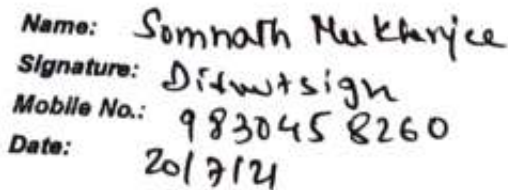 Name: Somnath Mukherjee
Signature:
Mobile No.: 9830458260
Date: 20/7/21